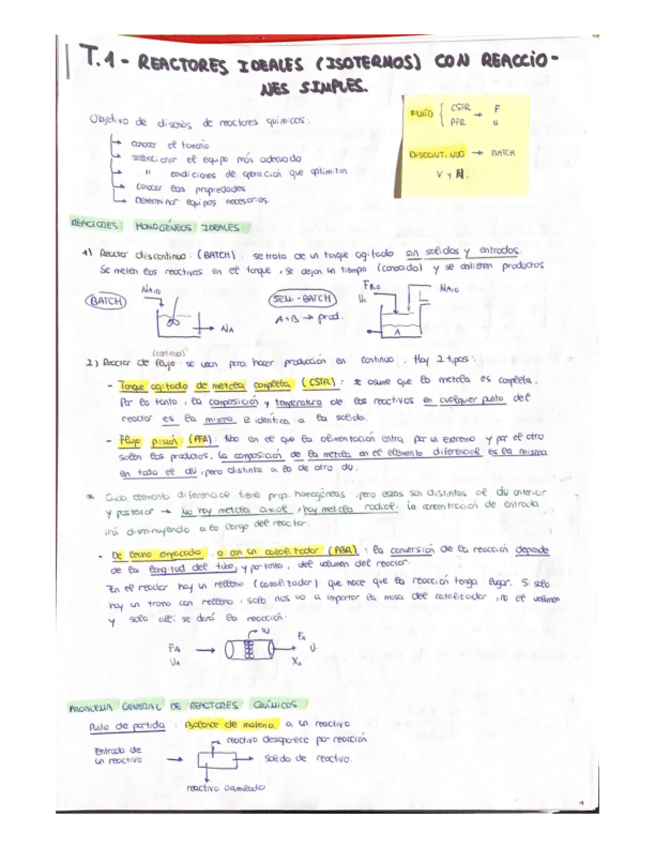 T.1 - REACTORES IDEALES (ISOTERMOS) CON REACCIO-
NES SIMPLES.
Objetivo de diseños de reactores químicos:
conocer el tamaño
seleccionar el equipo más adecuado
" condiciones de operación que optimitos
Conocer las propiedades
Determinar equipos necesarios.
FLUJO { CSTR PFR → F u
DISCONTINUO → BATCH
V y N.
REACIORES HOMOGÉNEOS IDEALES
1) Reactor discontinuo (BATCH): se trata de un tanque agitado sin salidas y entradas.
Se meten los reactivos en el tanque, se dejan un tiempo (cerrado) y se obtienen productos
BATCH
NA,0
NA
SEMI-BATCH
A+B → prod.
FB,0
NA,0
A
(continuo)
2) Reactor de flujo: se usan para hacer producción en continuo. Hay 2 tipos:
- Tanque agitado de mezcla completa (CSTR): se asume que la mezcla es completa.
Por lo tanto, la composición y temperatura de los reactivos en cualquier punto del
reactor es la misma e idéntica a la salida.
- Flujo pistón (PFR): tubo en el que la alimentación entra por un extremo y por el otro
salen los productos. La composición de la mezcla en el elemento diferencial es la misma
en todo el dV, pero distinta a la de otro dV.
* Cada elemento diferencial tiene prop. homogéneas, pero estas son distintas al dV anterior
y posterior → No hay mezcla axial, hay mezcla radial. La concentración de entrada
irá disminuyendo a lo largo del reactor.
- De lecho empacado o con un catalizador (PBR): la conversión de la reacción depende
de la longitud del tubo, y por tanto, del volumen del reactor.
En el reactor hay un relleno (catalizador) que hace que la reacción tenga lugar. Si solo
hay un tramo con relleno, solo nos va a importar la masa del catalizador, no el volumen
y solo allí se dará la reacción.
FA
UA
W
FA
U
XA
PROBLEMA GENERAL DE REACTORES QUÍMICOS
Punto de partida: Balance de materia a un reactivo
reactivo desaparece por reacción
Entrada de
un reactivo
salida de reactivo.
reactivo acumulado
1